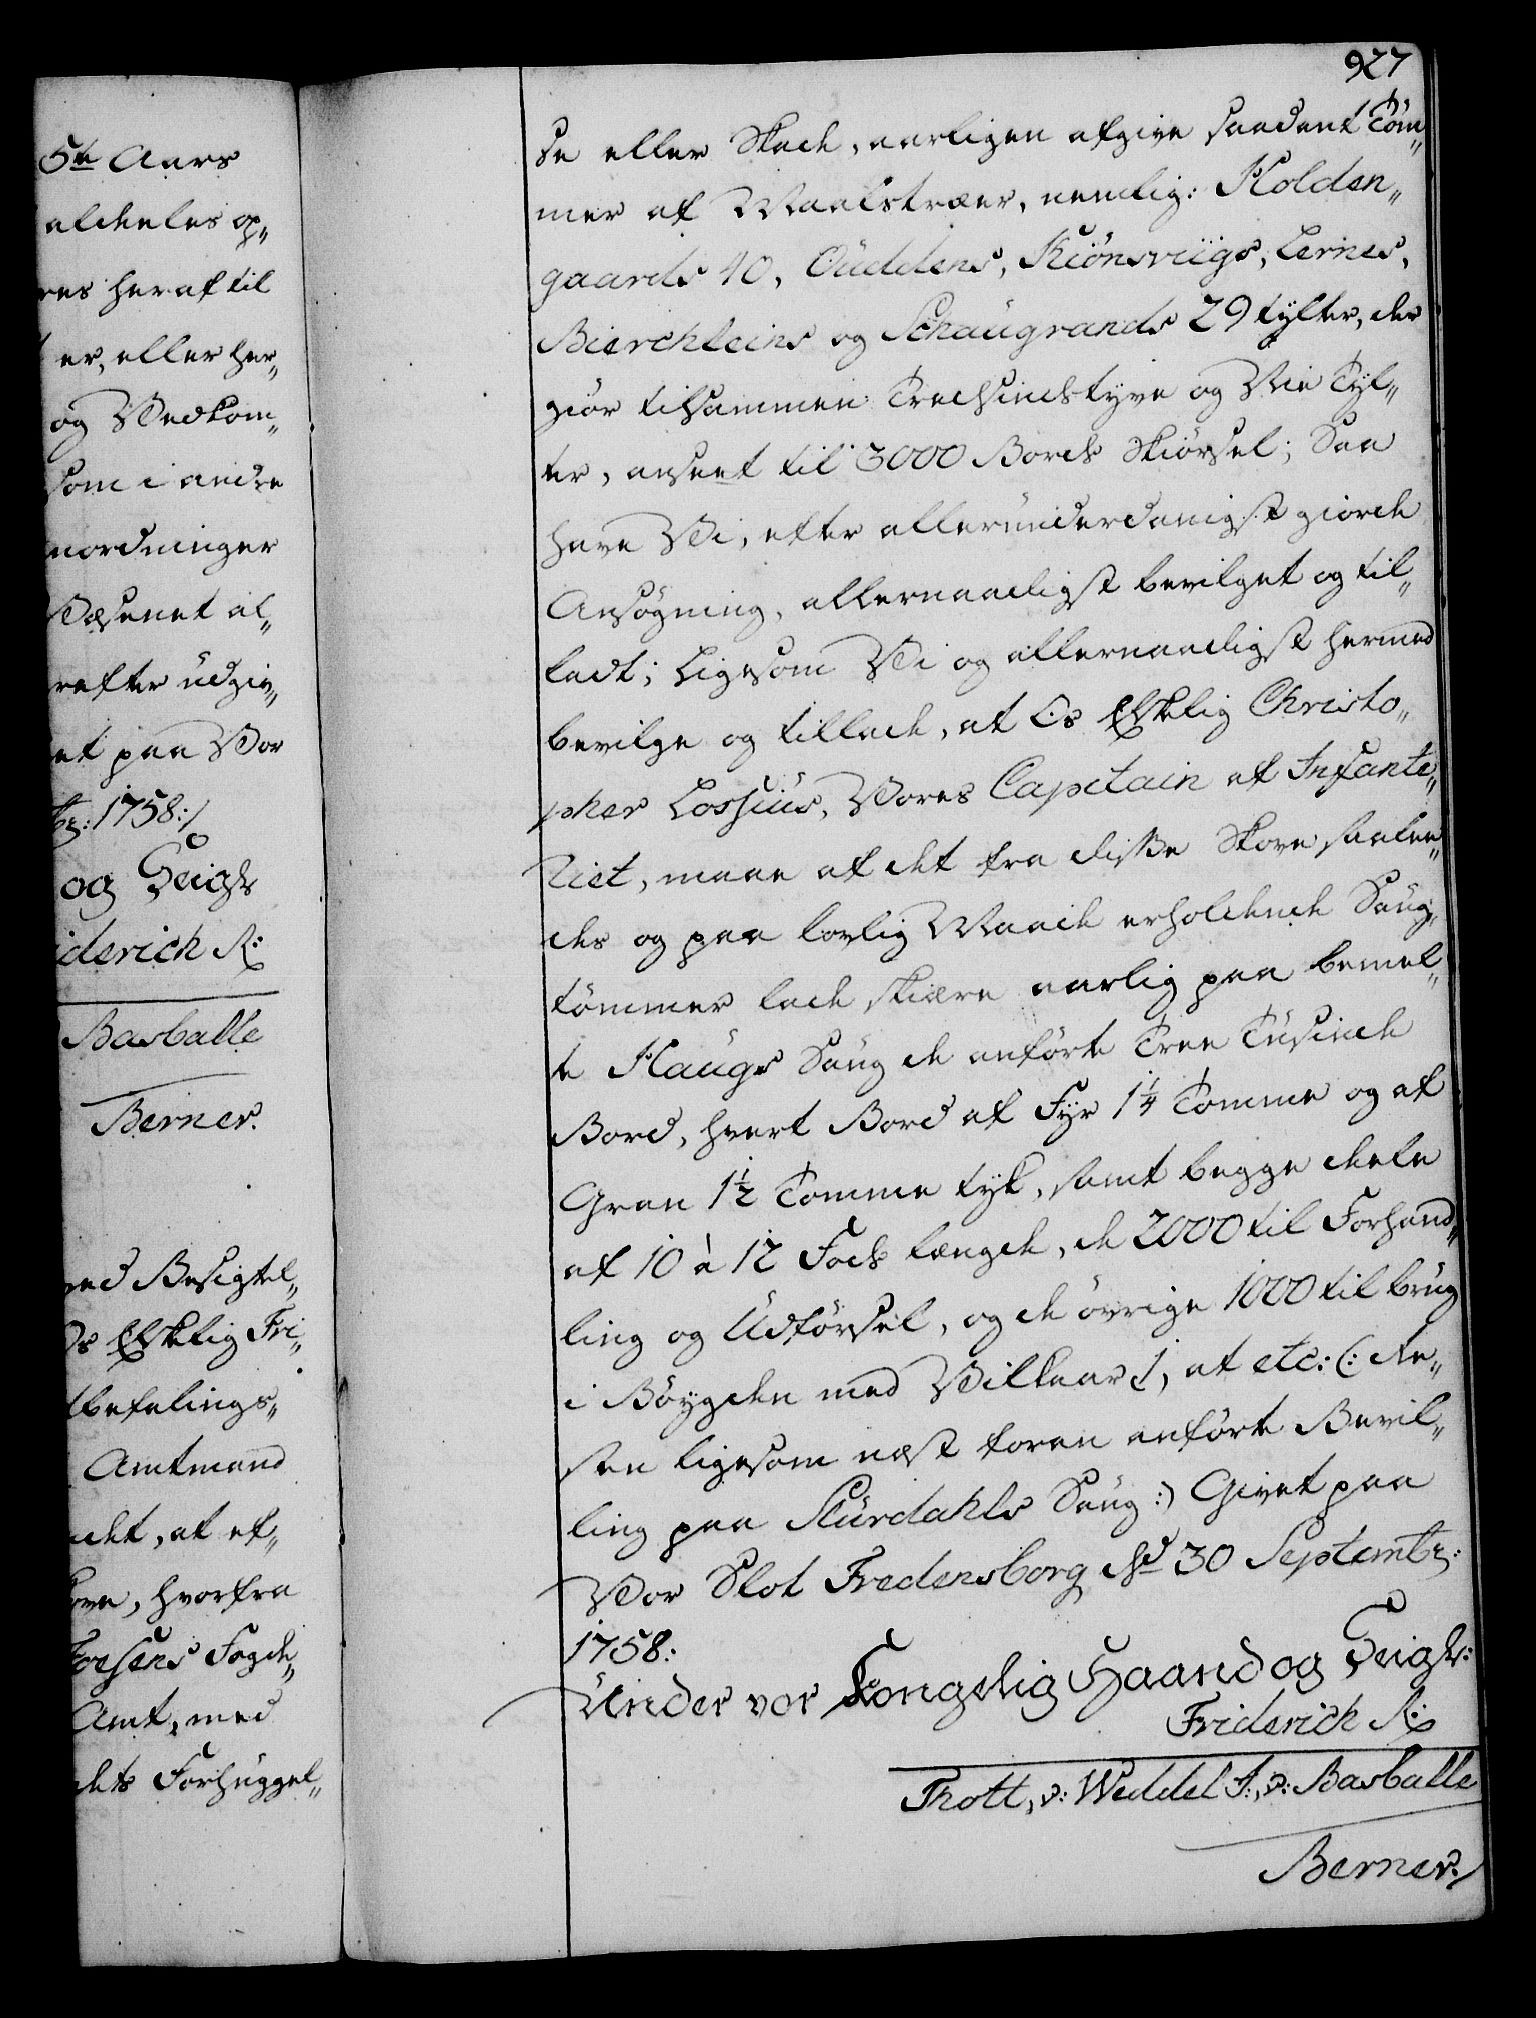 5te Aars
aldeeles op„
res heraf til
er, eller her„
og Vedkom„
som i andre
nordninger
Væsenet al„
refter udgiv„
et paa Vor
br: 1758:/
og Seigl
iderich R:
Basballe
Berner.
ved Besigtel„
Os Elskelig Fri„
befalings„
Amtmand
adt, at ef„
kove, hvorfra
Foesens Fogde„
Amt, med
dets Forhuggel„
927
se eller Skade, aarligen afgive saadant Töm„
mer af Maalstræer, nemlig: Holden„
gaards 40, Ouddens, Kiönsviigs, Lernes,
Bierchleins og Schaugrands 29 tylter, der
giör tilsammen Tredsindstyve og Nie Tyl„
ter, anseet til 3000 Bords Skiörsel; Saa
have Vi, efter allerunderdanigst giorde
Ansögning, allernaadigst bevilget og til„
ladt; Ligesom Vi og allernaadigst hermed
bevilge og tillade, at Os Elskelig Christo„
pher Lossius, Vores Capitain af Infante„
riet, maae af det fra disse Skove saale„
des og paa lovlig Maade erholdende Saug„
tömmer lade skiære aarlig paa bemel„
te Haugs Saug de anförte Tree Tusinde
Bord, hvert Bord af Fyr 1¼ Tomme og af
Gran 1½ Tomme tyk, samt begge deele
af 10 à 12 Fods længde, de 2000 til Forhand„
ling og Udförsel, og de övrige 1000 til brug
i Böygden med Vilkaar /, at etc: (: Re„
sten ligesom næst foran anförte Bevil„
ling paa Sturdahls Saug :) Givet paa
Vor Slot Fredensborg dend 30 Septembr:
1758:
Under vor Kongelig Haand og Seigl:
Friderich R:
Thott, v: Weddel F:, v: Basballe
Berner./